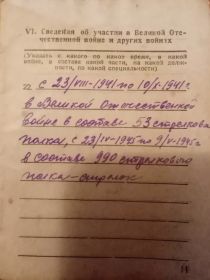 VI. Сведения об участии в Великой Оте-
чественной войне и других войнах
(Указать с какого по какое время, в какой
войне, в составе какой части, на какой долж-
ности, по какой специальности)
22 с 23/VIII-1941 по 10/X-1941 г.
в Великой отечественной
войне в составе 53 стрелкова
полка, с 23/IV-1945 по 9/V-1945 г.
в составе 990 стрелкового
полка-стрелок